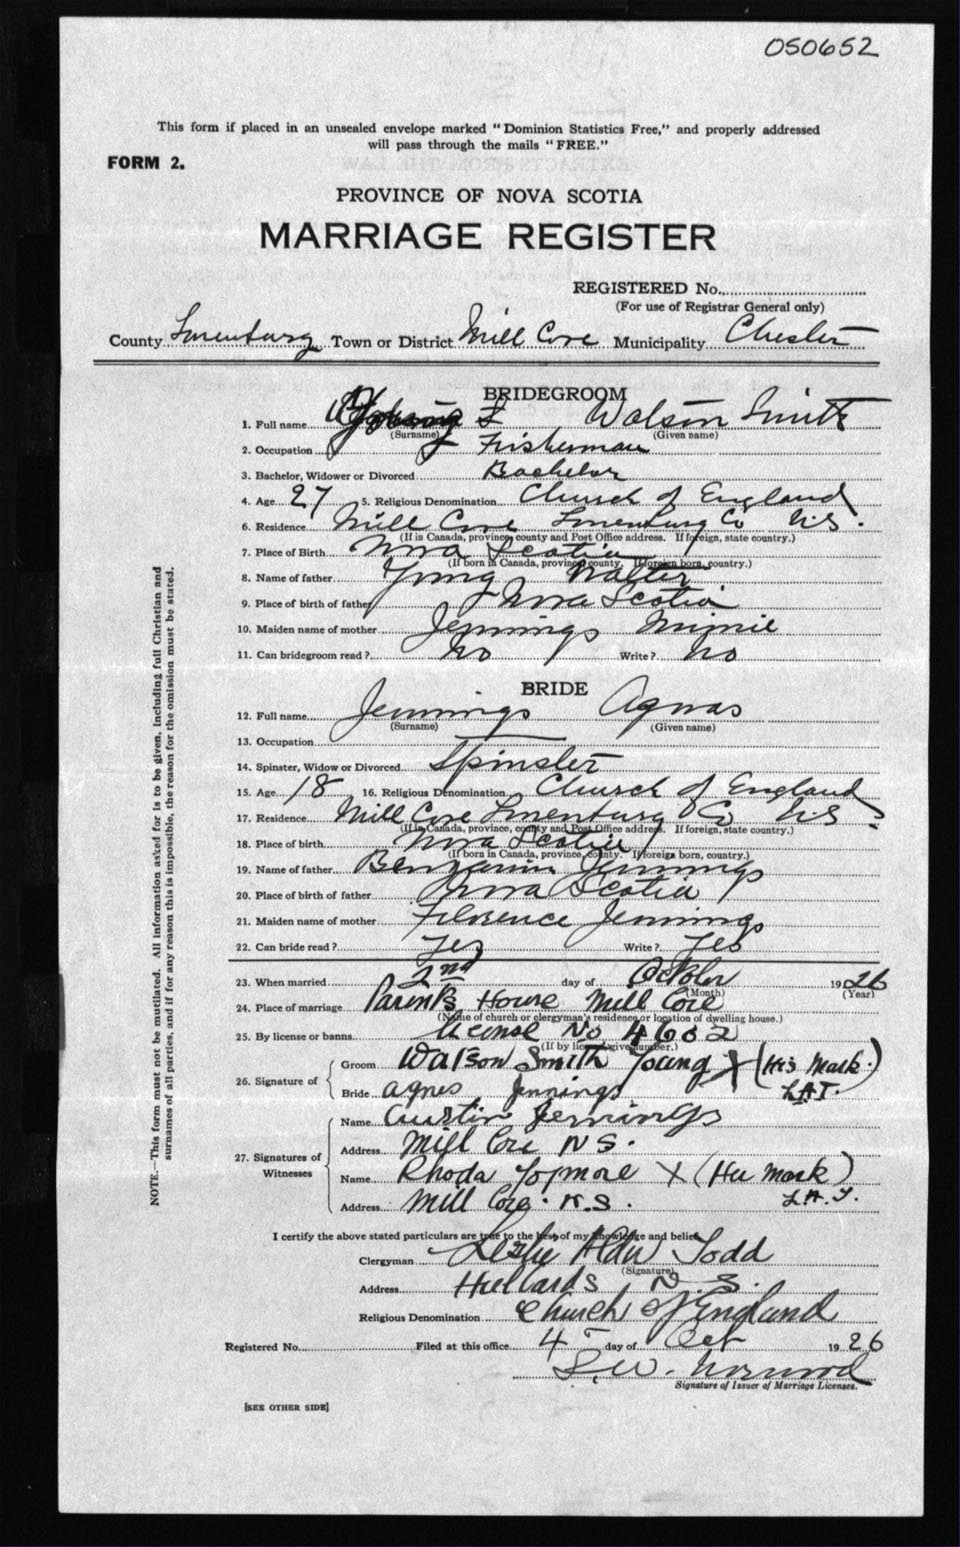 050652
This form if placed in an unsealed envelope marked "Dominion Statistics Free," and properly addressed
will pass through the mails "FREE."
FORM 2.
PROVINCE OF NOVA SCOTIA
MARRIAGE REGISTER
REGISTERED No.
(For use of Registrar General only)
County Lunenburg Town or District Mill Cove Municipality Chester
BRIDEGROOM
1. Full name Young Watson Smith
(Surname) (Given name)
2. Occupation Fisherman
3. Bachelor, Widower or Divorced Bachelor
4. Age 27 5. Religious Denomination Church of England
6. Residence Mill Cove Lunenburg Co N.S.
(If in Canada, province, county and Post Office address. If foreign, state country.)
7. Place of Birth Nova Scotia
(If born in Canada, province, county. If foreign born, country.)
8. Name of father Young Walter
9. Place of birth of father Nova Scotia
10. Maiden name of mother Jennings Minnie
11. Can bridegroom read? No Write? No
BRIDE
12. Full name Jennings Agnas
(Surname) (Given name)
13. Occupation
14. Spinster, Widow or Divorced Spinster
15. Age 18 16. Religious Denomination Church of England
17. Residence Mill Cove Lunenburg Co N.S
(If in Canada, province, county and Post Office address. If foreign, state country.)
18. Place of birth Nova Scotia
(If born in Canada, province, county. If foreign born, country.)
19. Name of father Benjamin Jennings
20. Place of birth of father Nova Scotia
21. Maiden name of mother Florence Jennings
22. Can bride read? Yes Write? Yes
23. When married 2nd day of October 1926
(Month) (Year)
24. Place of marriage Parents House Mill Cove
(Name of church or clergyman's residence or location of dwelling house.)
25. By license or banns License No 4602
(If by license give number.)
26. Signature of Groom Watson Smith Young X (His Mark.)
L.A.T.
Bride Agnes Jennings
27. Signatures of Witnesses Name Austin Jennings
Address Mill Cove N S.
Name Rhoda X (Her Mark)
L.A.T.
Address Mill Cove. N.S.
I certify the above stated particulars are true to the best of my knowledge and belief.
Clergyman Leslie Todd
(Signature)
Address Hubbards N. S.
Religious Denomination Church of England
Registered No. Filed at this office 4 day of Oct 1926
S.W. Norwood
Signature of Issuer of Marriage Licenses.
[SEE OTHER SIDE]
NOTE.—This form must not be mutilated. All information asked for is to be given, including full Christian and
surnames of all parties, and if for any reason this is impossible, the reason for the omission must be stated.